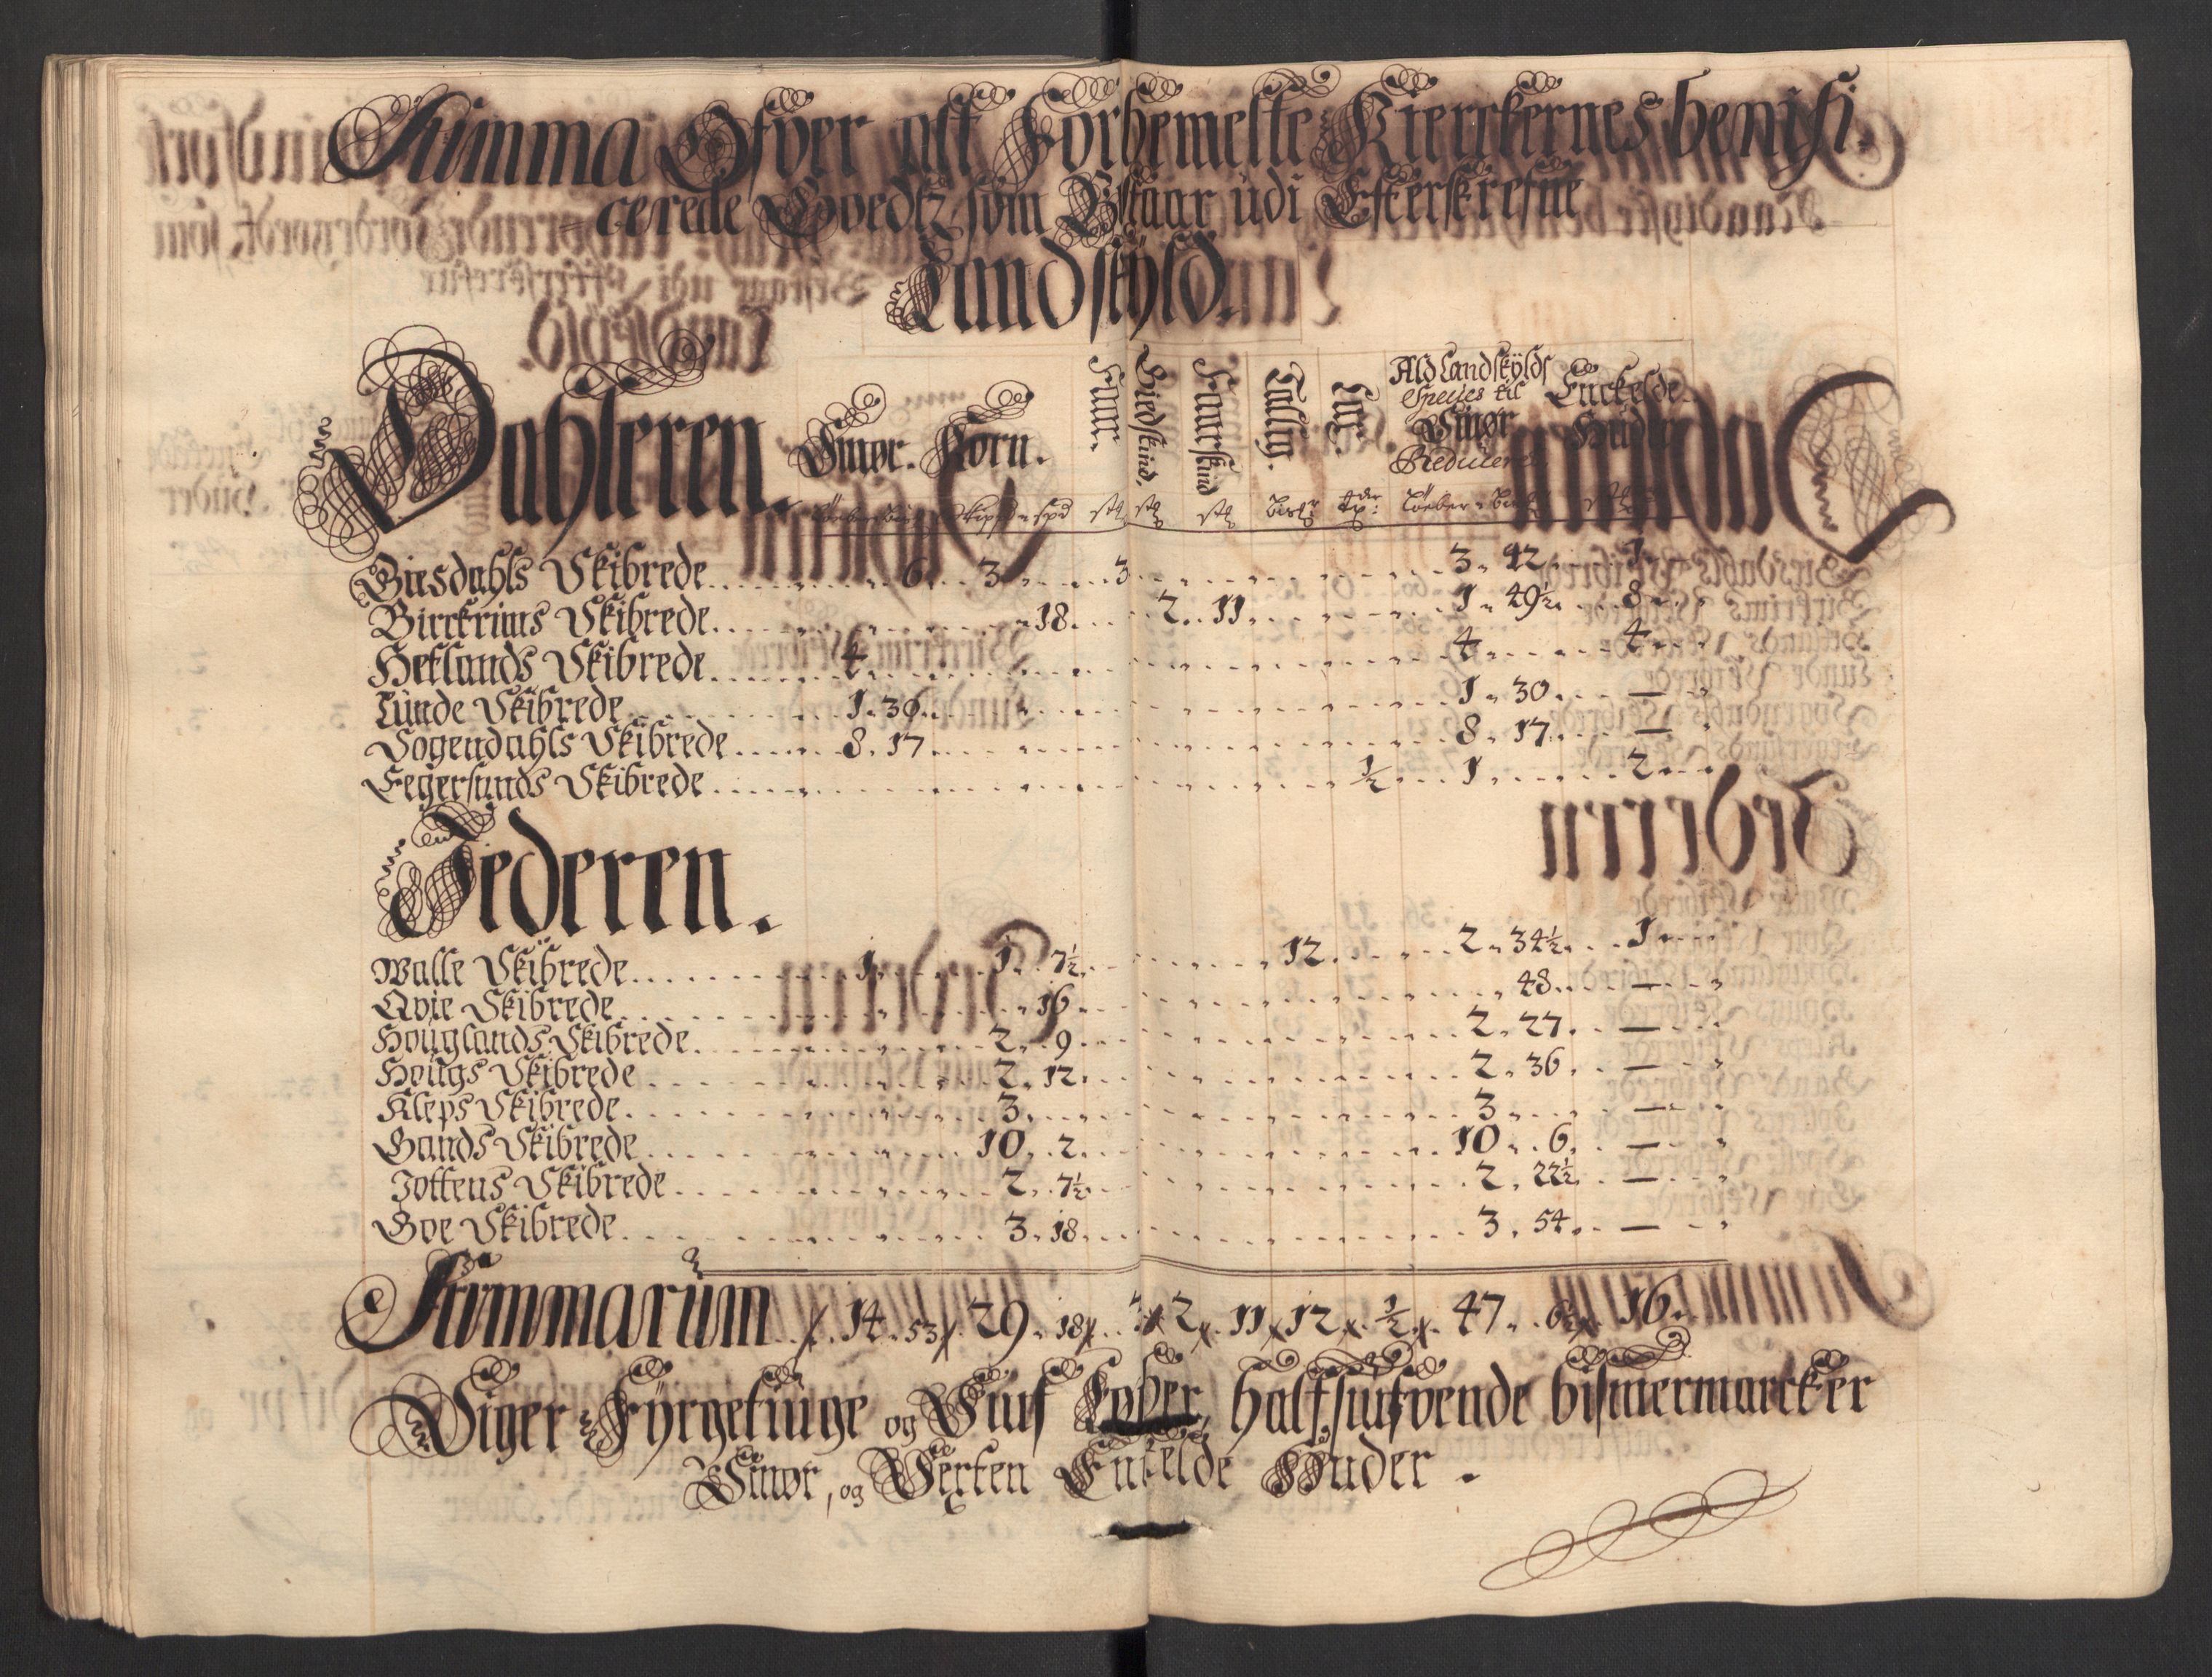 Summa Ofver alt Forbemelte Kierckernes benifi-
cerede Goedtz som Bstaar udi Efterskrefne
Landskÿld.
Dahleren. Smør. Korn. Faar. Giedskind. Faarskind Tallig. Ald Landskÿlds Species til Smør Reduceret Enckelde Huder
Giesdahls Skibrede 6 3 3 3 42 1
Birckrims Skibrede 18 2 11 1 49½ 8
Hetlands Skibrede 4 4 4
Lunde Skibrede 1 30 1 30 —
Sogendahls Skibrede 8 17 8 17 —
Eegersunds Skibrede ½ 1 2
Jederen.
Walle Skibrede 1 1 7½ 12 2 34½ 1
Qvie Skibrede 16 48 —
Houglands Skibrede 2 9 2 27 —
Hougs Skibrede 2 12 2 36 —
Kleps Skibrede 3 3 —
Gands Skibrede 10 2 10 6 —
Jottens Skibrede 2 7½ 2 22½ —
Goe Skibrede 3 18 3 54 —
Summarum 14 53 29 18 2 11 12 ½ 47 6½ 16
Siger Fÿrgetiuge og Siuf Løber, halfsiufvende bismermarcker
Smør, og Sexten Enkelde Huder